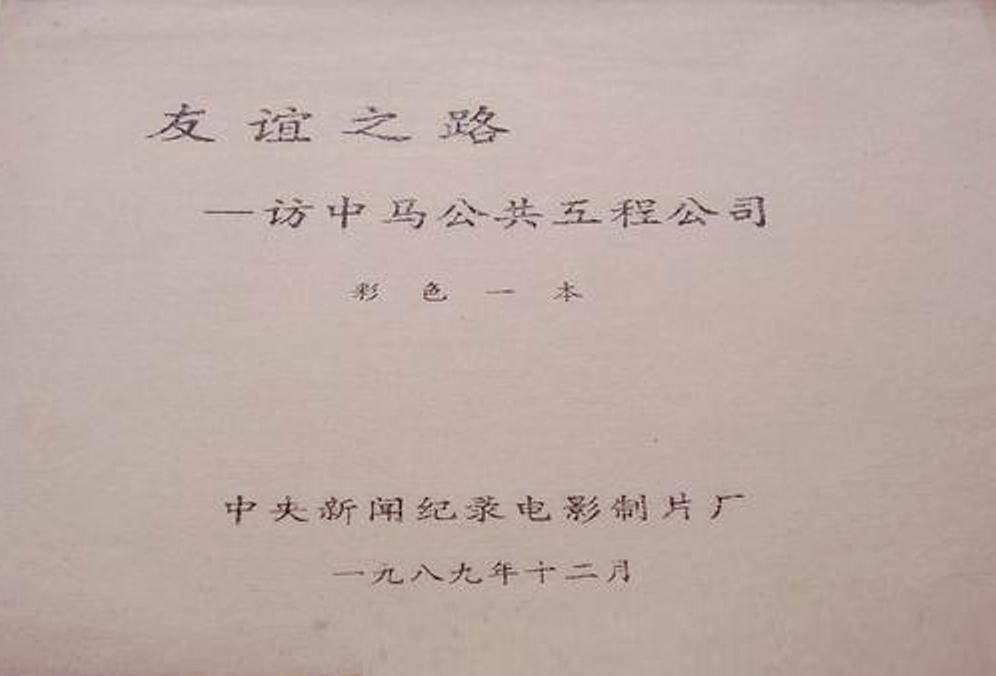 友谊之路
—访中马公共工程公司
彩色一本
中央新闻纪录电影制片厂
一九八九年十二月